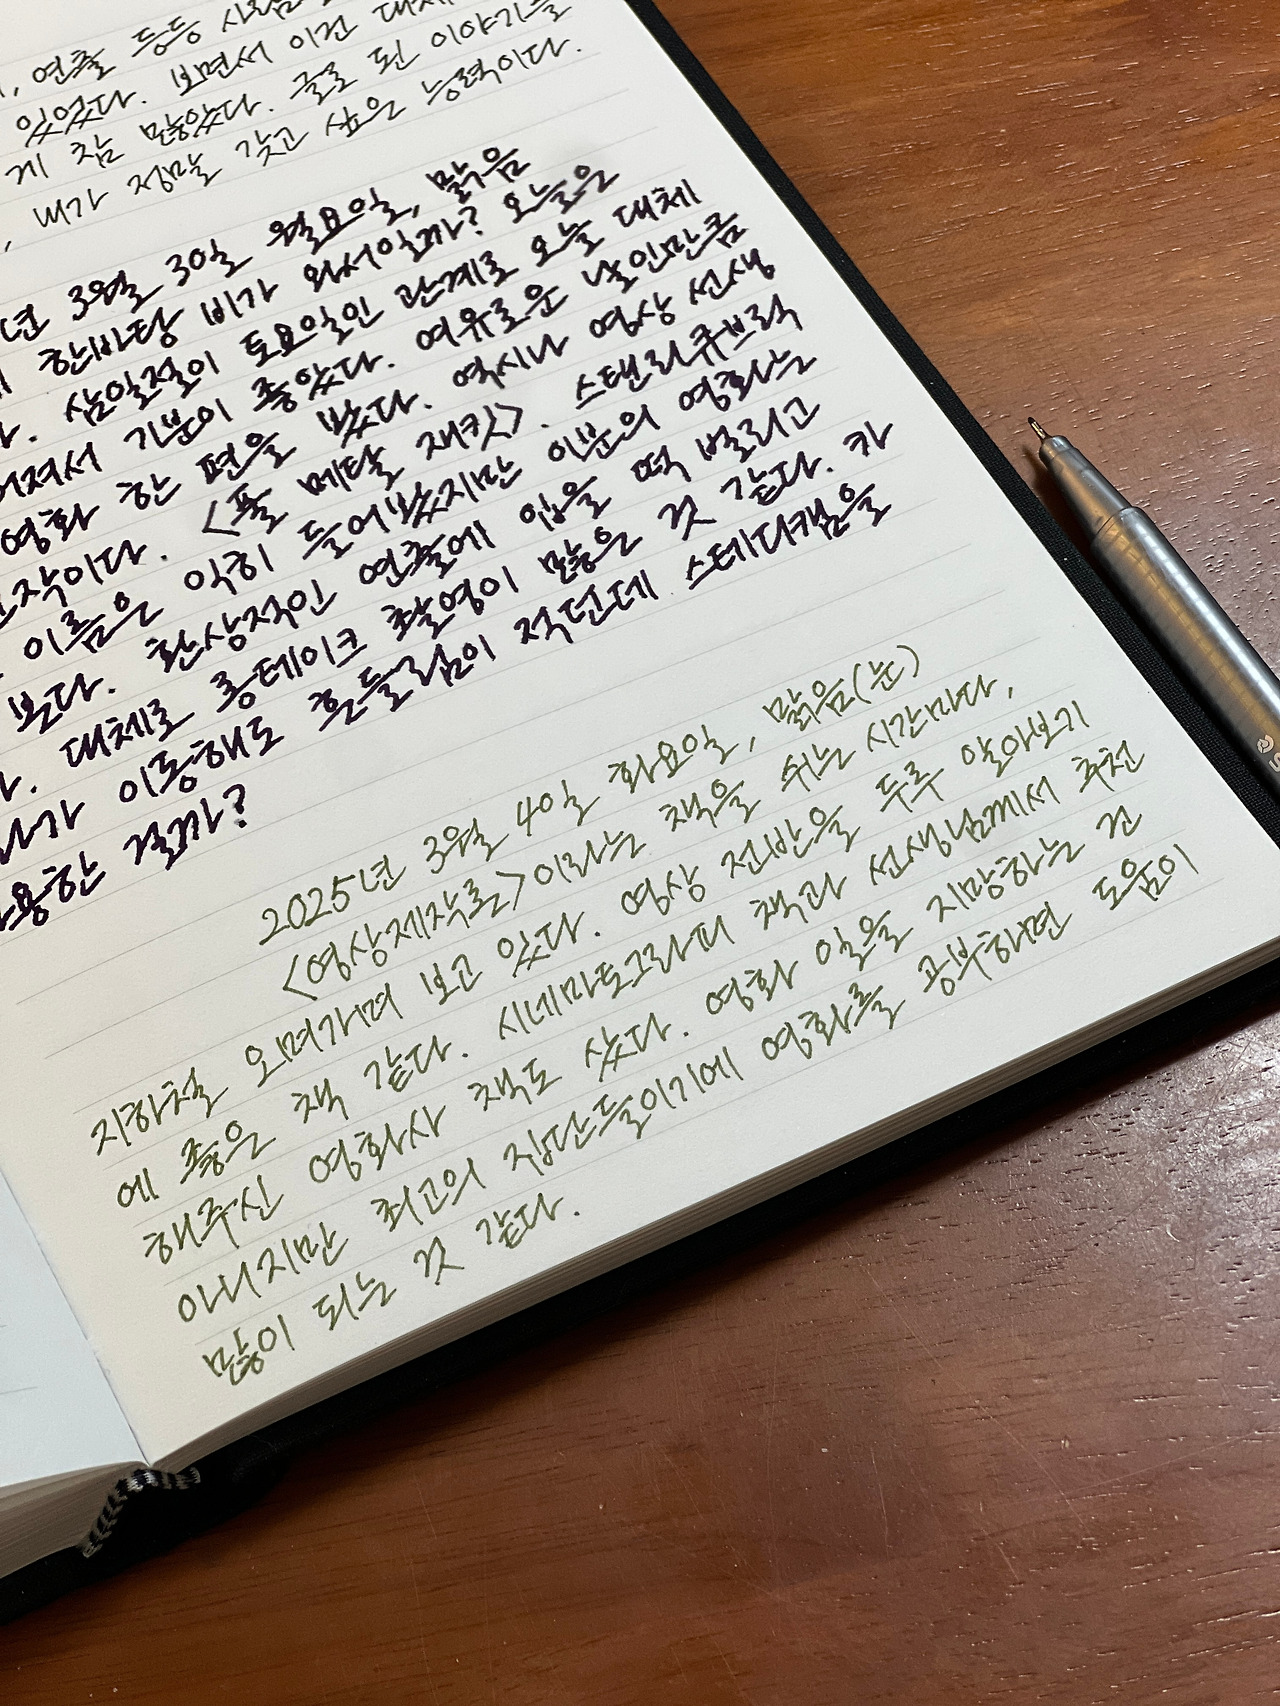 , 연출 등등
있었다. 보면서 이건 대체
게 참 많았다. 글로 된 이야기를
, 내가 정말 갖고 싶은 능력이다.
년 3월 3일 월요일, 맑음
한바탕 비가 와서일까? 오늘은
삼일절이 토요일인 관계로 오늘 대체
여져서 기분이 좋았다. 여유로운 날인만큼
영화 한 편을 봤다. 역시나 영상 선생
작이다. <풀 메탈 재킷>. 스탠리큐브릭
이름은 익히 들어봤지만 이분의 영화는
본다. 환상적인 연출에 입을 떡 벌리고
. 대체로 롱테이크 촬영이 많은 것 같다. 카
가 이동해도 흔들림이 적던데 스테디캠을
용한 걸까?
2025년 3월 4일 화요일, 맑음(눈)
<영상제작론>이라는 책을 쉬는 시간마다,
지하철 오며가며 보고 있다. 영상 전반을 두루 알아보기
에 좋은 책 같다. 시네마토그라피 책과 선생님께서 추천
해주신 영화사 책도 샀다. 영화 일을 지망하는 건
아니지만 최고의 집단들이기에 영화를 공부하면 도움이
많이 되는 것 같다.